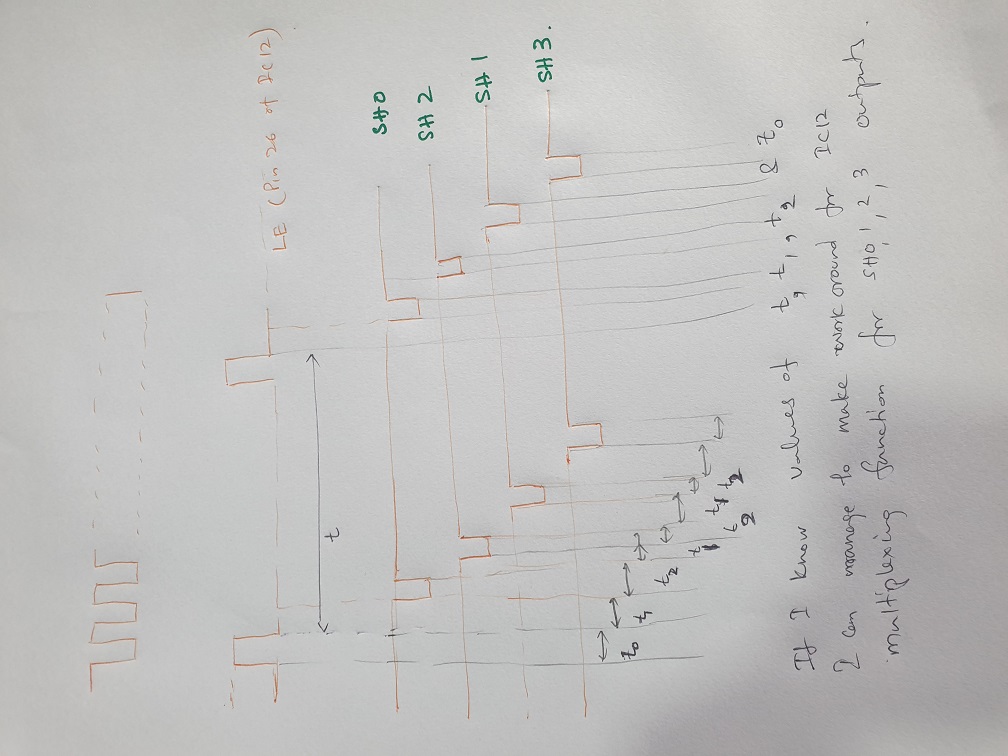 LE (Pin 26 of IC12)
SH0
SH2
SH1
SH3.
t
t0
t1
t2
t1
t2
t1
t2
If I know values of t, t1, t2 & t0
I can manage to make work around for IC12
multiplexing function for SH0,1,2,3 outputs.